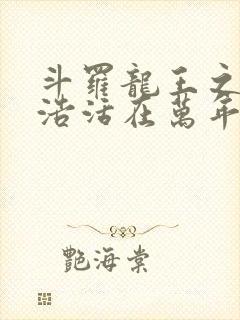 斗羅龍王之
浩活在萬年
艷海棠